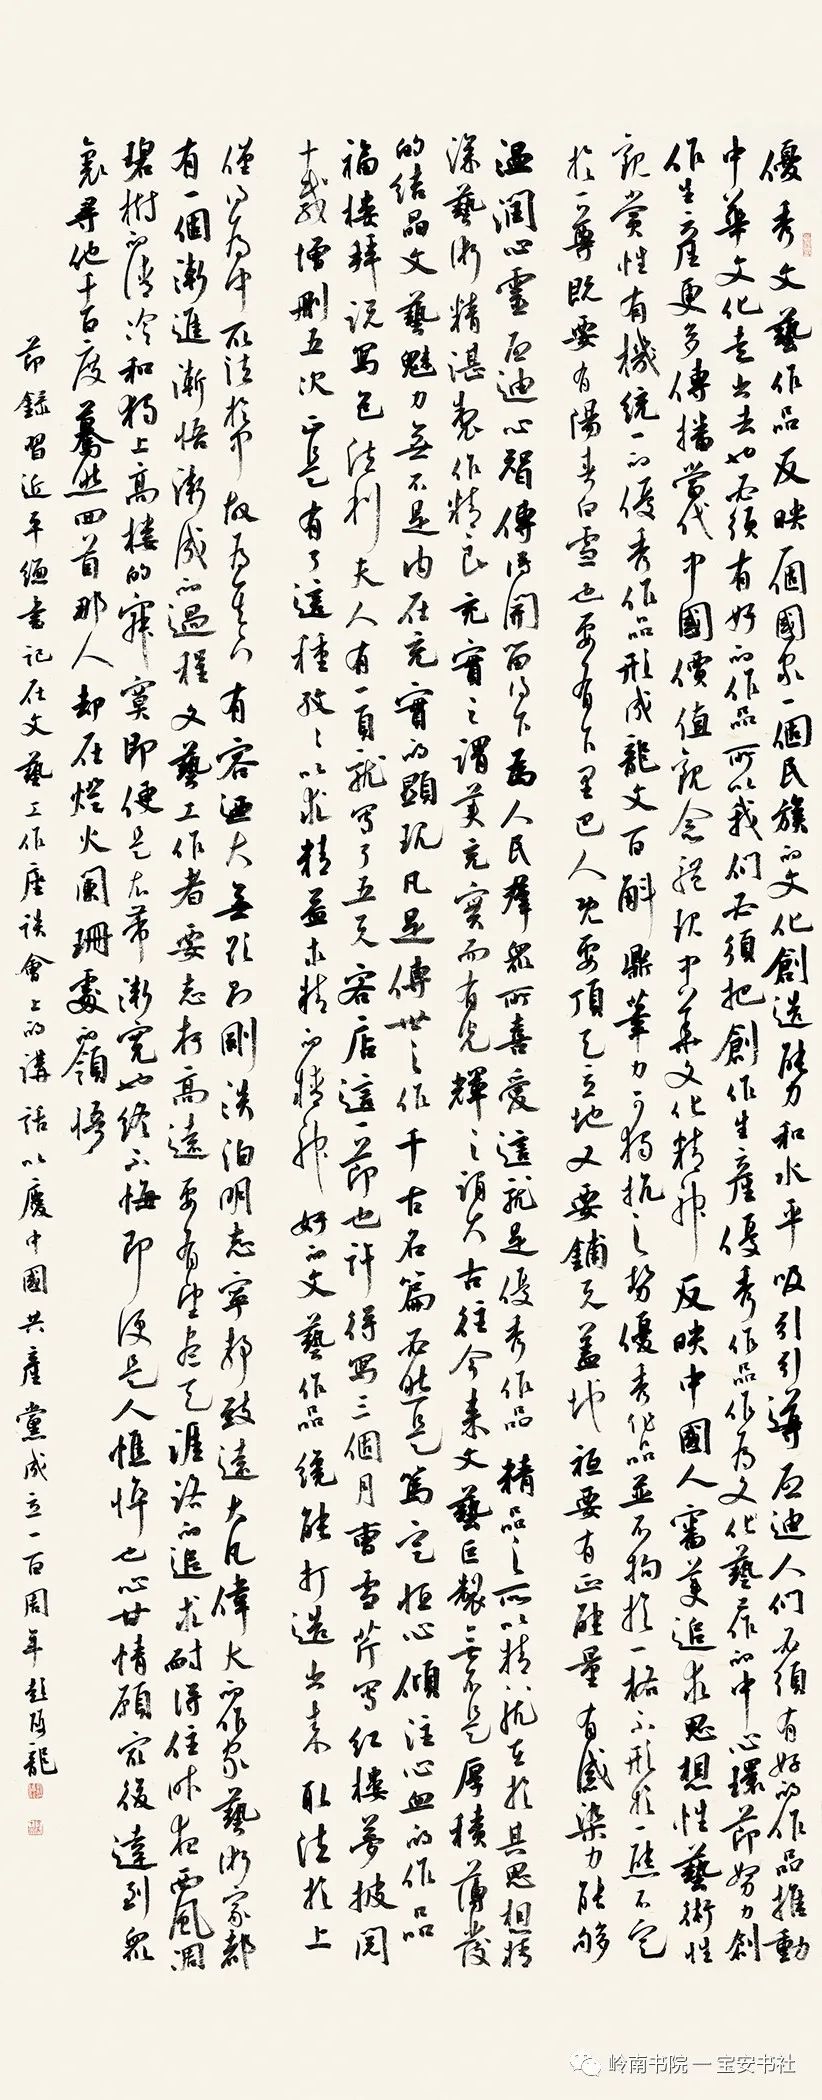 優秀文藝作品反映一個國家一個民族的文化創造能力和水平吸引引導启迪人们必須有好的作品推動
中華文化走出去也必須有好的作品所以我们必須把創作生産優秀作品作為文化藝作的中心環節努力創
作生産更多傳播當代中國價值觀念體現中華文化精神反映中國人審美追求思想性藝術性
觀賞性有機統一的優秀作品形成龍文百斛鼎筆力可獨抗之勢優秀作品並不拘於一格不形於一態不定
於一尊既要有陽春白雪也要有下里巴人既要頂天立地又要鋪天蓋地祗要有正能量有感染力能够
温潤心靈启迪心智傳得開留得下為人民羣衆所喜愛這就是優秀作品精品之所以精就在於其思想精
深藝術精湛製作精良充實之謂美充實而有光輝之謂大古往今來文藝巨製無不是厚積薄發
的結晶文藝魅力無不是内在充實的顯現凡是傳世之作千古名篇必然是篤定恒心傾注心血的作品
福樓拜説寫包法利夫人有一頁就寫了五天客店這一節也許得寫三個月曹雪芹寫红樓夢披閱
十載增刪五次正是有了這種孜孜以求精益求精的精神好的文藝作品纔能打造出来取法於上
僅得為中取法於中故為其下有容迺大無欲則剛淡泊明志寧靜致遠大凡偉大的作家藝術家都
有一個漸進漸悟漸成的過程文藝工作者要志存高遠要有望盡天涯路的追求耐得住昨夜西風凋
碧樹的清冷和獨上高樓的寂寞即便是衣帶漸寬也終不悔即便是人憔悴也心甘情願最後達到衆
裏尋他千百度驀然回首那人却在燈火闌珊處的領悟
節錄習近平總書記在文藝工作座談會上的講話以慶中國共産黨成立一百周年彭隊龍
岭南书院一宝安书社